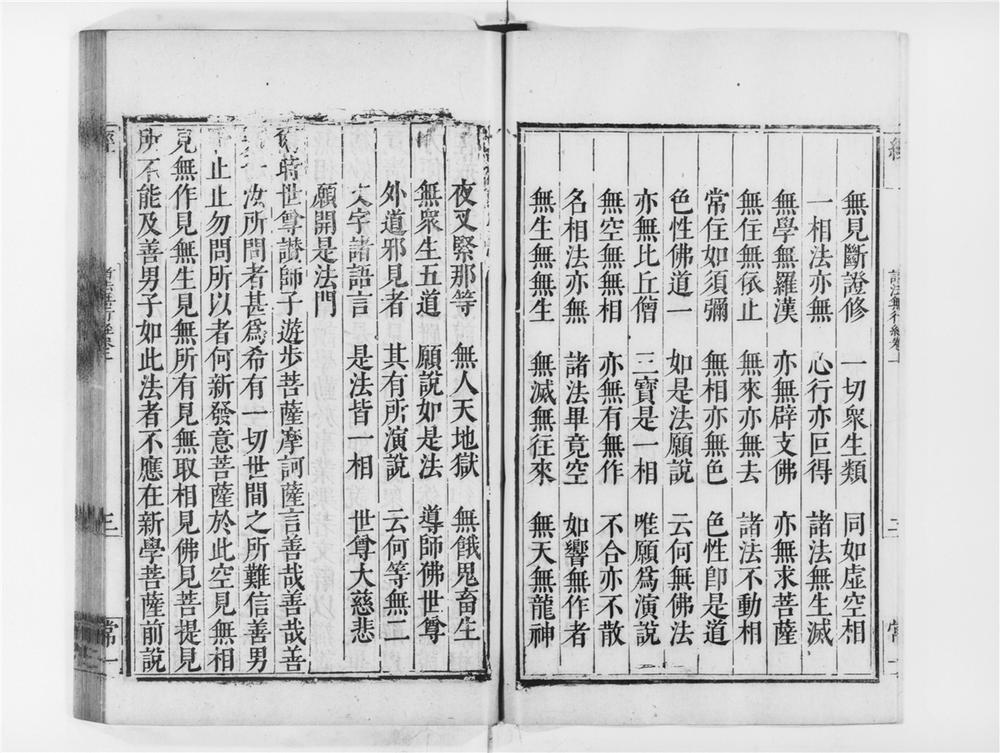 無見斷證修 一切衆生類 同如虛空相
一相法亦無 心行亦叵得 諸法無生滅
無學無羅漢 亦無辟支佛 亦無求菩薩
無住無依止 無來亦無去 諸法不動相
常住如須彌 無相亦無色 色性卽是道
色性佛道一 如是法願說 云何無佛法
亦無比丘僧 三寶是一相 唯願爲演說
無空無無相 亦無有無作 不合亦不散
名相法亦無 諸法畢竟空 如響無作者
無生無無生 無滅無往來 無天無龍神
夜叉緊那等 無人天地獄 無餓鬼畜生
無衆生五道 願說如是法 導師佛世尊
外道邪見者 其有所演說 云何等無二
文字諸語言 是法皆一相 世尊大慈悲
願開是法門
爾時世尊讃師子遊步菩薩摩訶薩言善哉善哉善
汝所問者甚爲希有一切世間之所難信善男
止止勿問所以者何新發意菩薩於此空見無相
見無作見無生見無所有見無取相見佛見菩提見
所不能及善男子如此法者不應在新學菩薩前說
諸法無行經卷上
三
常一
經
三
常一